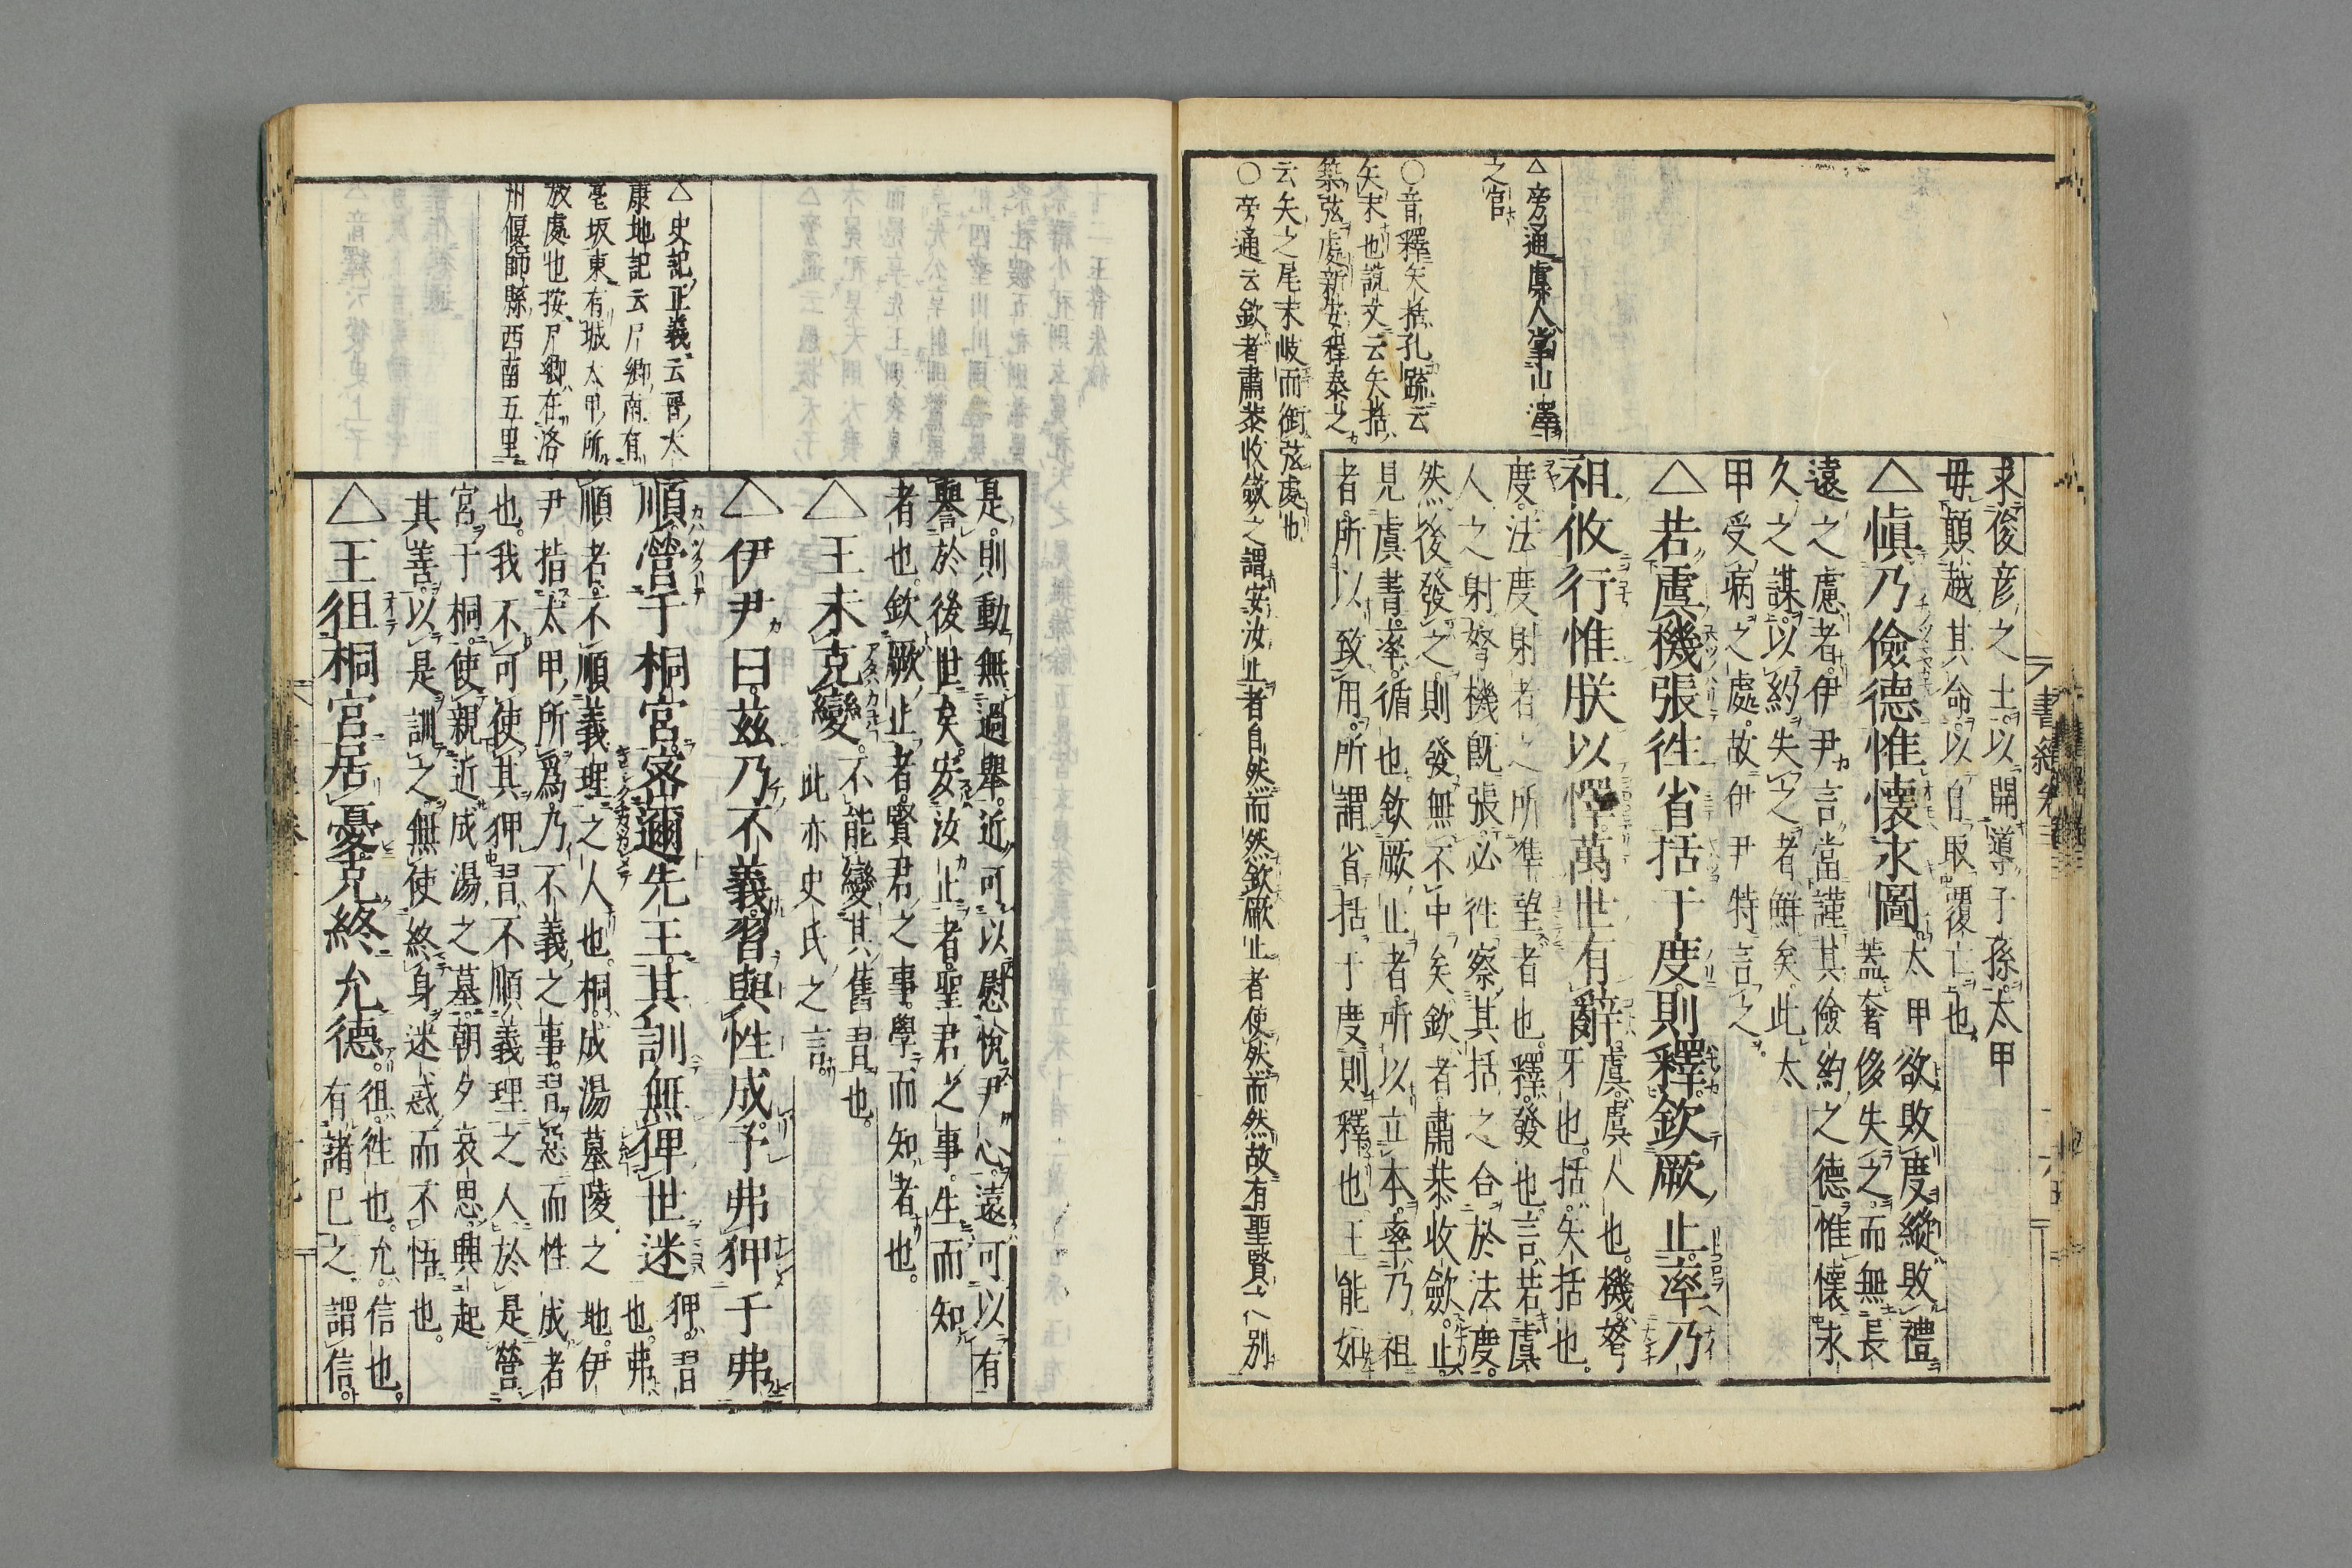 求俊彦之士。以開導子孫。太甲
毋顛越其命。以自取覆亡也。
△愼乃儉德惟懷永圖。太甲欲敗度縱敗禮
蓋奢侈失之而無長
遠之慮者。伊尹言當謹其儉約之德。惟懷永
久之謀。以約失之者鮮矣。此太
甲受病之處。故伊尹特言之。
△若虞機張徃省括于度則釋。欽厥止。率乃
祖攸行惟朕以懌。萬世有辭。虞。虞人也。機。弩
牙也。括。矢括也。
度。法度射者之所準望者也。釋。發也。言若虞
人之射。弩機旣張。必徃察其括之合於法度。
然後發之。則發無不中矣。欽者肅恭收歛。止。
見虞書。率。循也。欽厥止者所以立本。率乃祖
者。所以致用。所謂省括于度則釋也王能如
△旁通虞人掌山澤
之官
○音釋矢括孔疏云
矢末也說文云矢括
築弦處新安程泰之
云矢之尾末岐而銜弦處也
○旁通云欽者肅恭收斂之謂安汝止者自然而然欽厥止者使然而然故有聖賢之別
書經卷三
是。則動無過舉。近可以慰悅尹心。遠可以有
譽於後世矣。安汝止者。聖君之事。生而知
者也。欽厥止者。賢君之事。學而知者也。
△王未克變。不能變其舊習也。
此亦史氏之言。
△伊尹曰。茲乃不義。習與性成。予弗狎于弗
順。營于桐宮。密邇先王。其訓無俾世迷狎。習
也。弗
順者。不順義理之人也。桐。成湯墓陵之地。伊
尹指太甲所爲乃不義之事。習惡而性成者
也。我不可使其狎習不順義理之人。於是營
宮于桐。使親近成湯之墓。朝夕哀思。興起
其善。以是訓之。無使終身迷惑而不悟也。
△王徂桐宮居憂。克終允德。徂。徃也。允。信也。
有諸已之謂信。
△史記正義云晉太
康地記云尸卿南有
亳坂東有城太甲所
放處也按尸卿在洛
州偃師縣西南五里